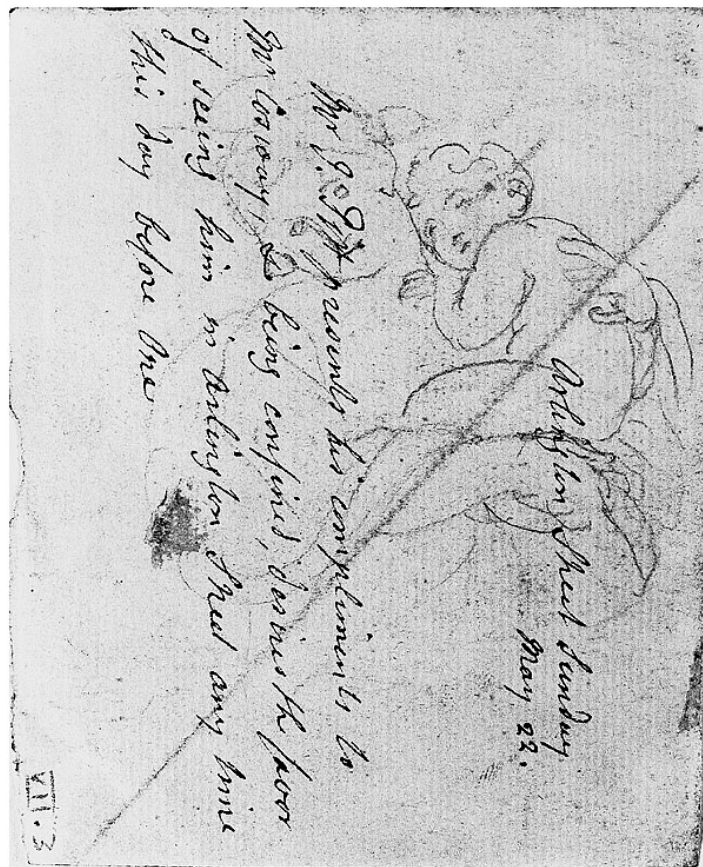 Arlington Street Sunday
May 22.
Mr J. Pitt presents his compliments to
Mr Cosway, & being confined, desires the favor
of seeing him in Arlington Street any time
this day before One
VII.3